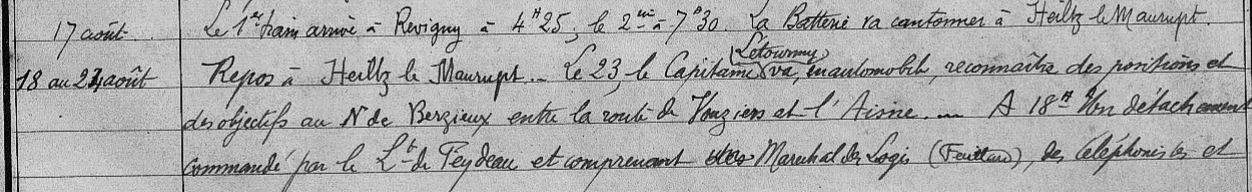 17 août. Le 1er train arrive à Revigny à 4H25, le 2me à 7H30. La Batterie va cantonner à Heiltz le Maurupt.
Létourmy
18 au 24 août Repos à Heiltz le Maurupt. — Le 23, le Capitaine va, en automobile, reconnaître des positions et
des objectifs au N de Berzieux entre la route de Vouziers et l'Aisne. — A 18H Un détachement
commandé par le Lt de Feydeau et comprenant Marechal des Logis (Feuillard), des téléphonistes et